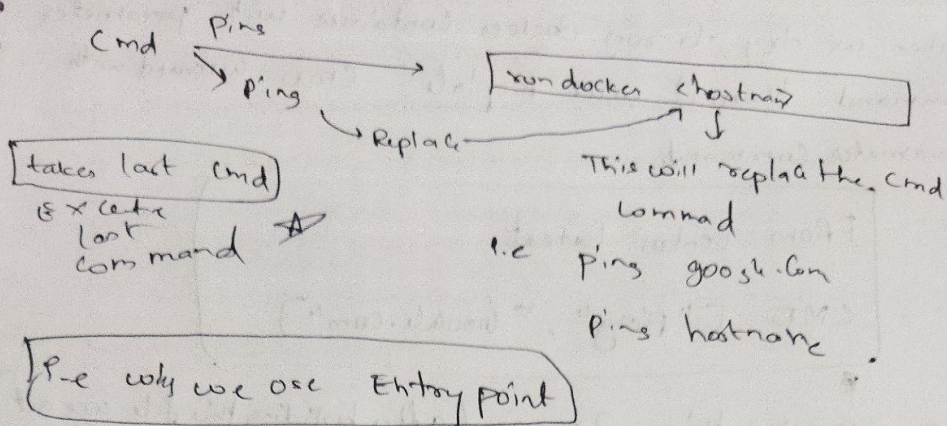 Cmd Ping
Ping
run docker <hostnai>
Replace
takes last Cmd
Excente
last
command
This will replace the Cmd
Commad
i.e ping google.com
Ping hostname
i.e why we use Entry point